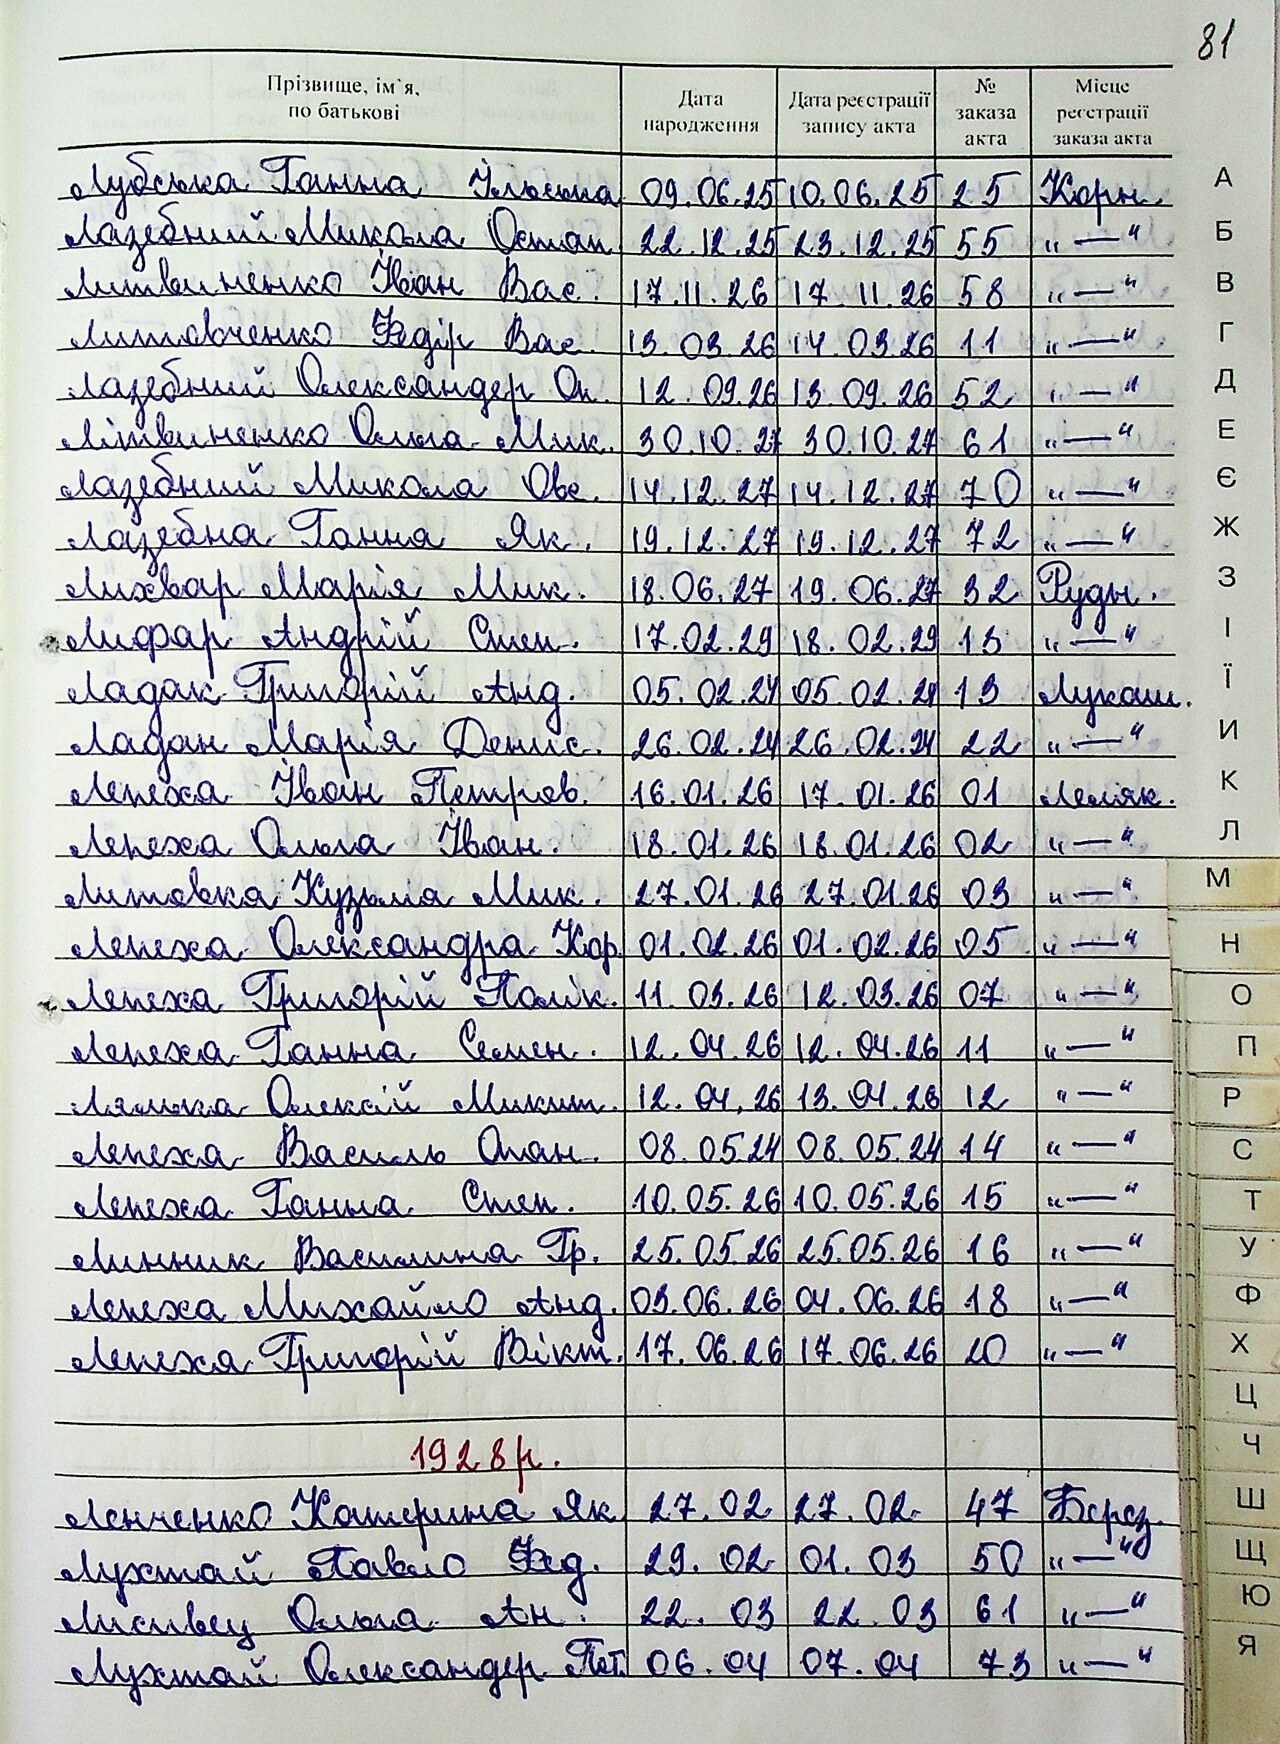 81
Прізвище, ім`я, по батькові Дата народження Дата реєстрації запису акта № заказа акта Місце реєстрації заказа акта
Лубська Ганна Ільїська 09.06.25 10.06.25 25 Корн.
Лазебний Микола Остап 22.12.25 23.12.25 55 „—“
Литвиненко Іван Вас. 17.11.26 17.11.26 58 „—“
Литовченко Федір Вас. 13.03.26 14.03.26 11 „—“
Лазебний Олександер Оп. 12.09.26 13.09.26 52 „—“
Літвиненко Ольга Мик. 30.10.27 30.10.27 61 „—“
Лазебний Микола Овс. 14.12.27 14.12.27 70 „—“
Лазебна Ганна Як. 19.12.27 19.12.27 72 „—“
Лихвар Марія Мик. 18.06.27 19.06.27 32 Руды.
Лифар Андрій Степ. 17.02.29 18.02.29 13 „—“
Ладак Григорій Анд. 05.02.24 05.02.24 13 Лукаш.
Ладан Марія Денис. 26.02.24 26.02.24 22 „—“
Лепеха Іван Петров. 16.01.26 17.01.26 01 Леляк.
Лепеха Ольга Іван. 18.01.26 18.01.26 02 „—“
Литовка Кузьма Мик. 27.01.26 27.01.26 03 „—“
Лепеха Олександра Кор. 01.02.26 01.02.26 05 „—“
Лепеха Григорій Полік. 11.03.26 12.03.26 07 „—“
Лепеха Ганна Семен. 12.04.26 12.04.26 11 „—“
Лялька Олексій Микит. 12.04.26 13.04.26 12 „—“
Лепеха Василь Опан. 08.05.24 08.05.24 14 „—“
Лепеха Ганна Степ. 10.05.26 10.05.26 15 „—“
Линник Василина Гр. 25.05.26 25.05.26 16 „—“
Лепеха Михайло Анд. 03.06.26 04.06.26 18 „—“
Лепеха Григорій Вікт. 17.06.26 17.06.26 20 „—“
1928 р.
Ленченко Катерина Як 27.02 27.02. 47 Берез.
Лухтай Павло Фед. 29.02 01.03 50 „—“
Лисивец Ольга Ан. 22.03 22.03 61 „—“
Лухтай Олександер Пет. 06.04 07.04 73 „—“
А
Б
В
Г
Д
Е
Є
Ж
З
І
Ї
И
К
Л
М
Н
О
П
Р
С
Т
У
Ф
Х
Ц
Ч
Ш
Щ
Ю
Я